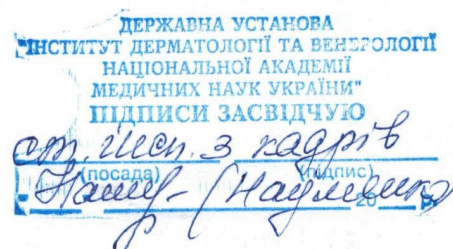 ДЕРЖАВНА УСТАНОВА
"ІНСТИТУТ ДЕРМАТОЛОГІЇ ТА ВЕНЕРОЛОГІЇ
НАЦІОНАЛЬНОЇ АКАДЕМІЇ
МЕДИЧНИХ НАУК УКРАЇНИ"
ПІДПИСИ ЗАСВІДЧУЮ
ст. інсп. з кадрів
(посада) (підпис)
(Науменко
20 р.